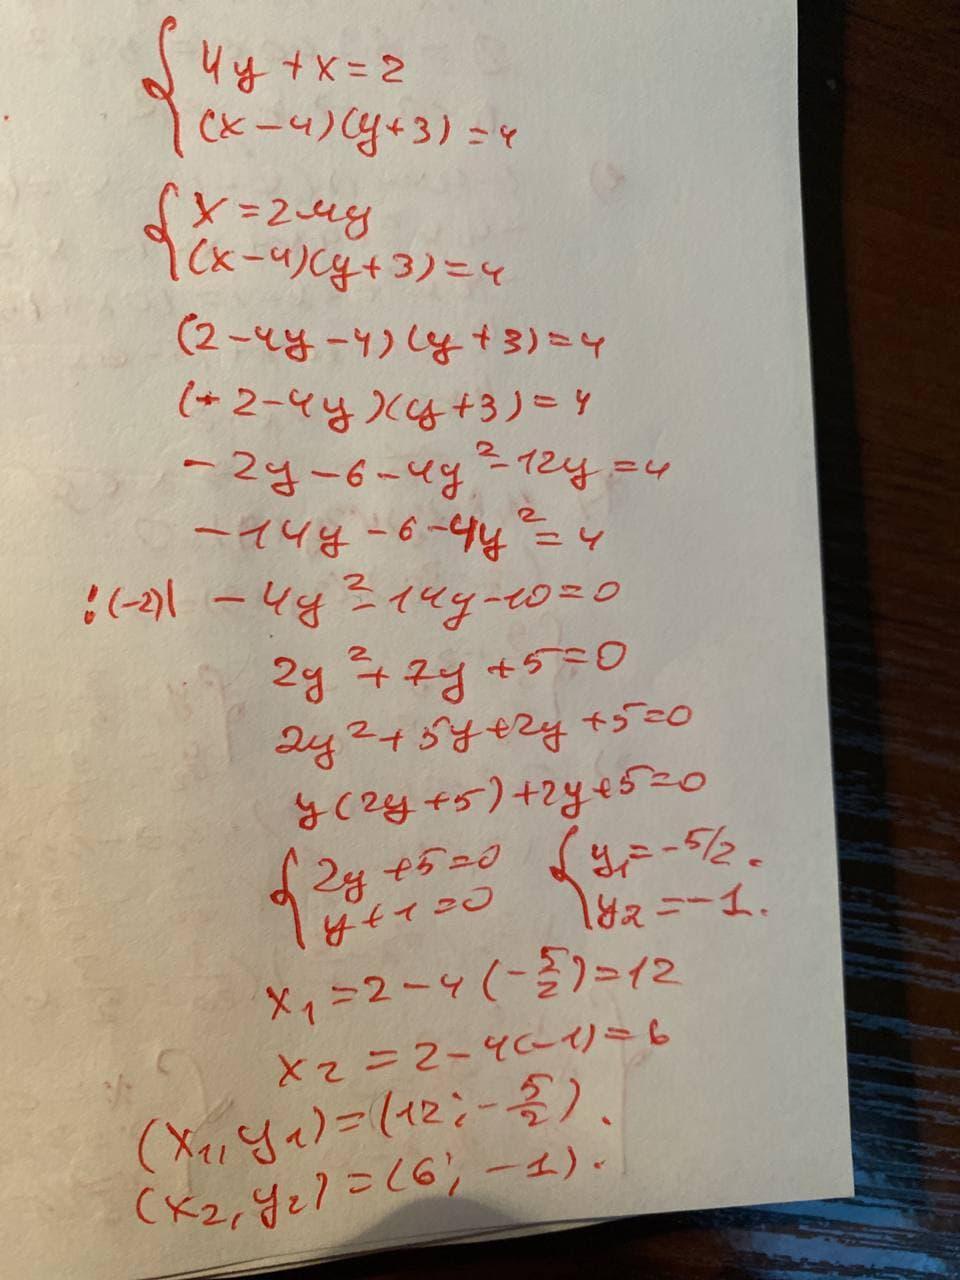 { 4y + x = 2
(x - 4)(y + 3) = 4
{ x = 2 - 4y
(x - 4)(y + 3) = 4
(2 - 4y - 4)(y + 3) = 4
(- 2 - 4y)(y + 3) = 4
- 2y - 6 - 4y² - 12y = 4
- 14y - 6 - 4y² = 4
:(-2)| - 4y² - 14y - 10 = 0
2y² + 7y + 5 = 0
2y² + 5y + 2y + 5 = 0
y(2y + 5) + 2y + 5 = 0
{ 2y + 5 = 0 { y₁ = - 5/2.
y + 1 = 0 y₂ = - 1.
x₁ = 2 - 4(- 5/2) = 12
x₂ = 2 - 4(-1) = 6
(x₁, y₁) = (12; - 5/2).
(x₂, y₂) = (6; - 1).